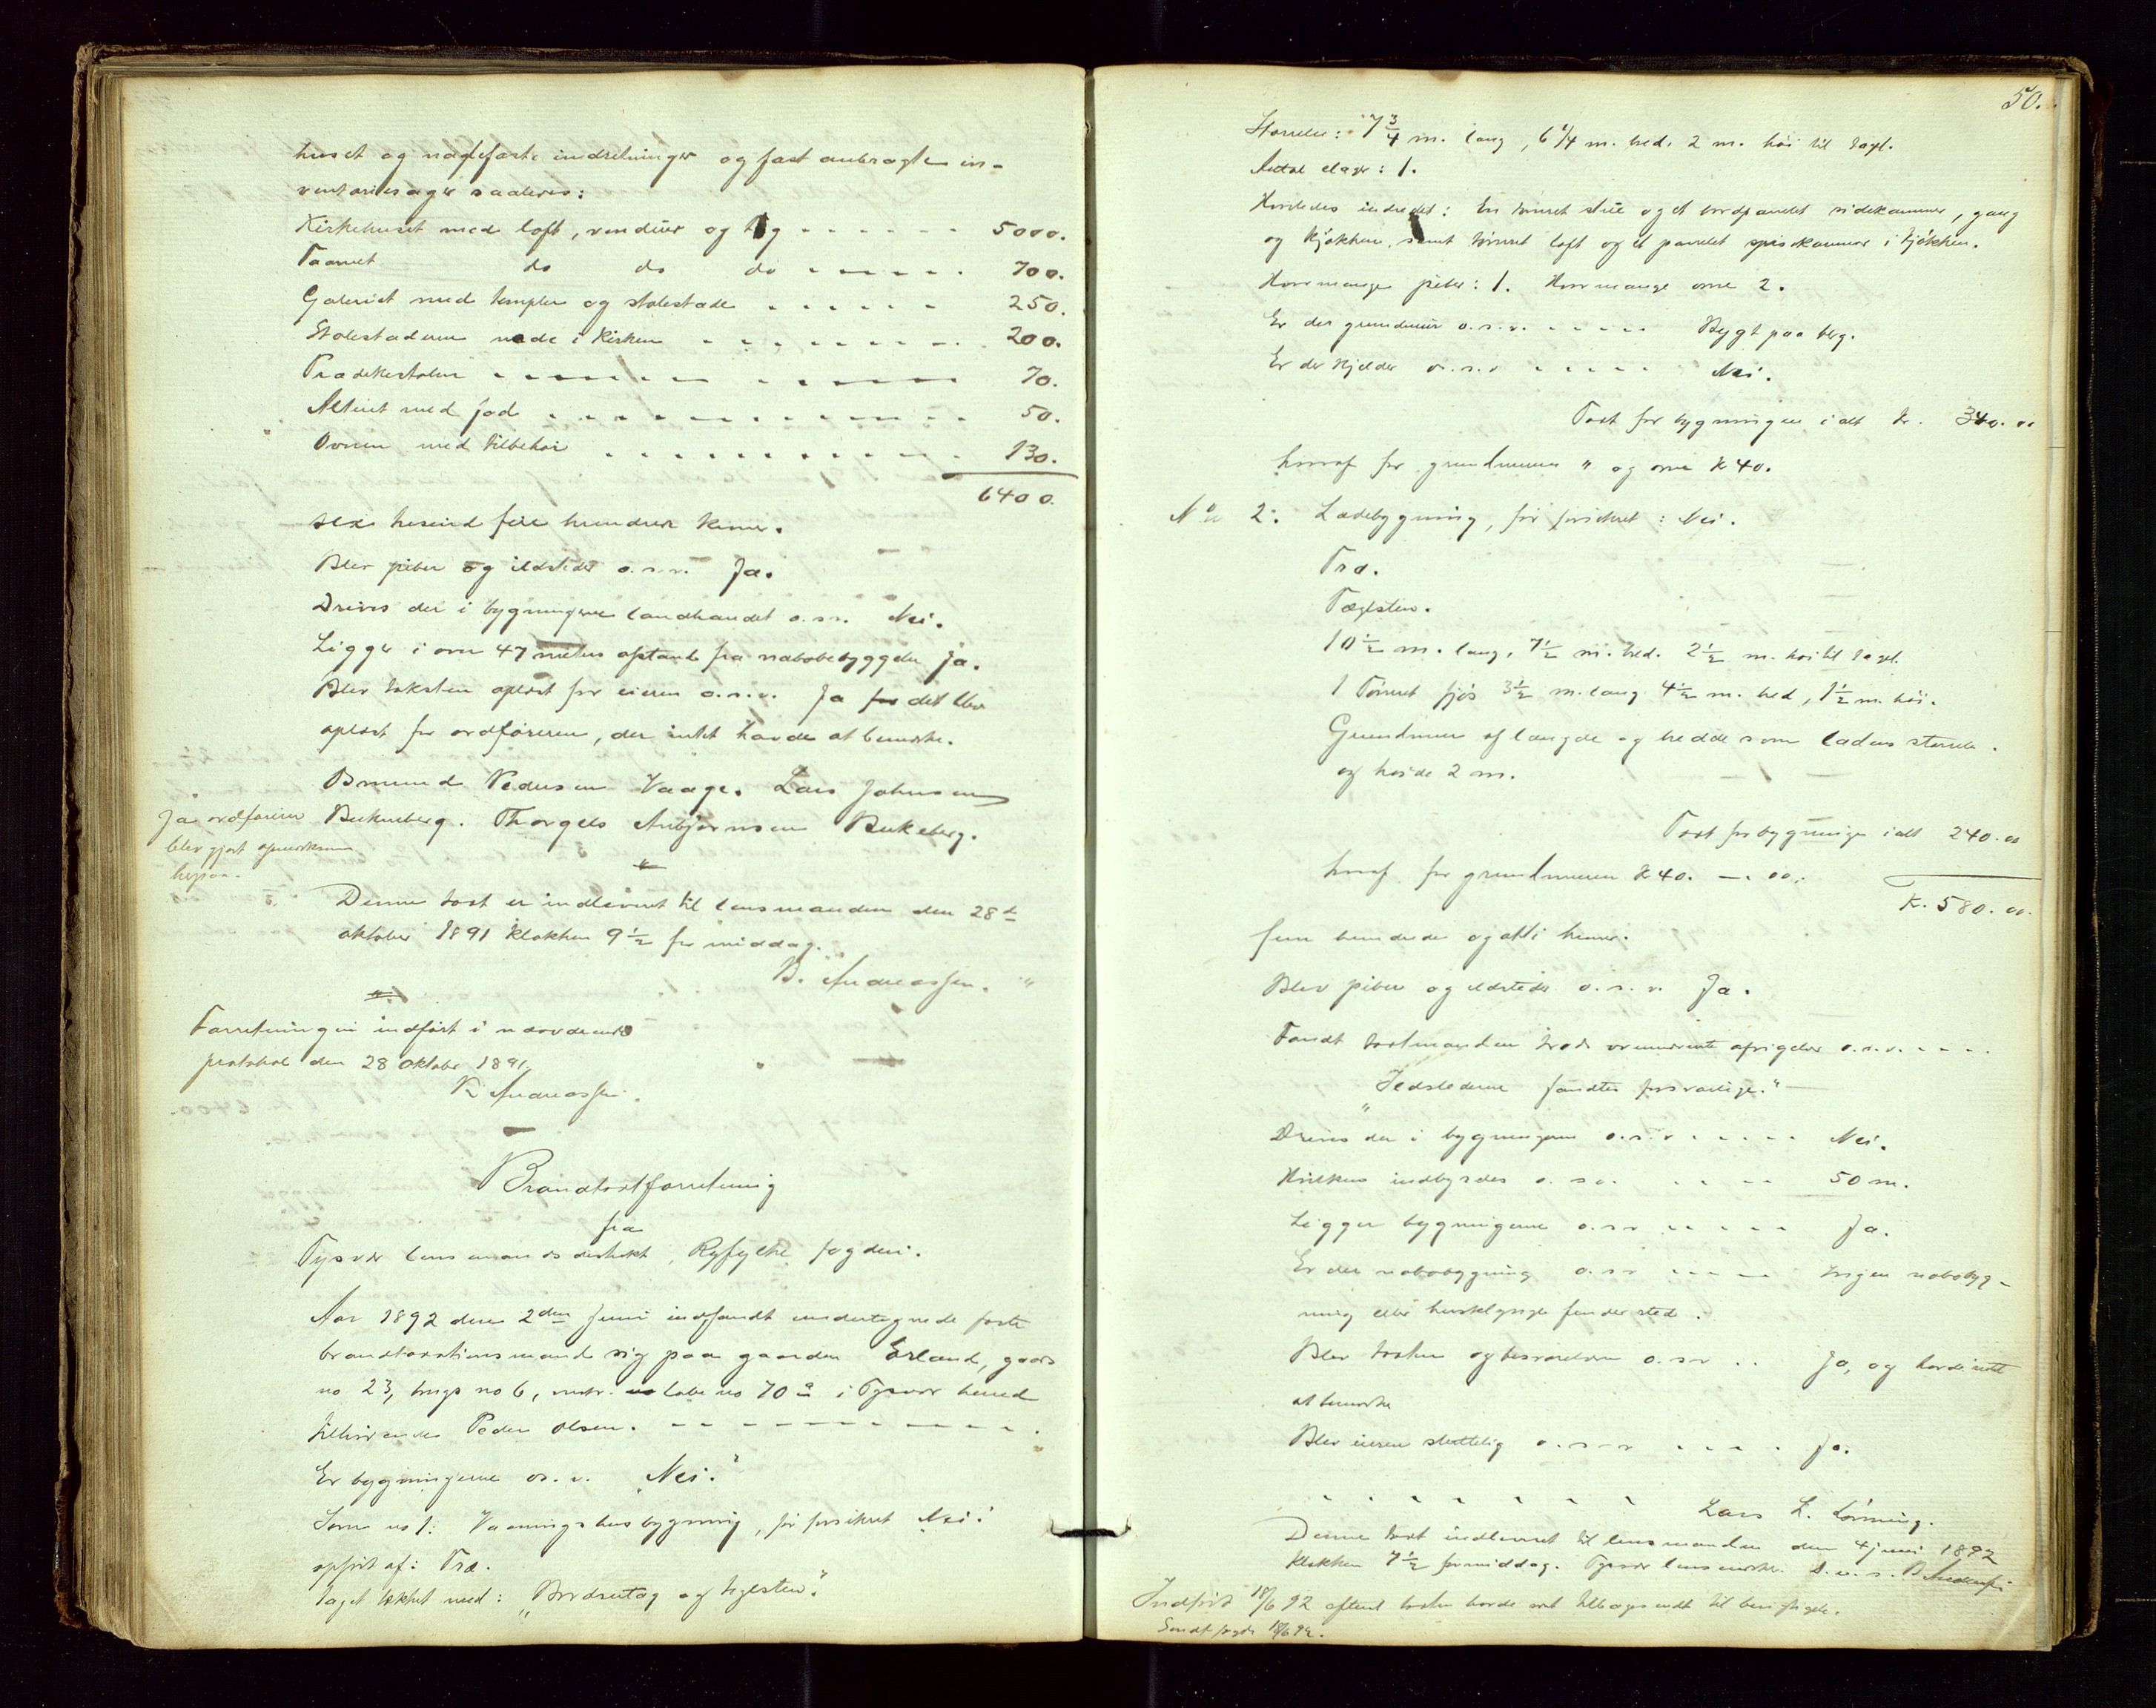 huset og naglefaste indretninger og fast anbragte in-
ventariesager saaledes:
Kirkehuset med loft, vinduer og tag - - - - - - 5000.
Taarnet do do do - - - - - 700.
Galeriet med trapper og stolestade - - - - - - 250.
Stolestaderne nede i Kirken - - - - - - - - 200.
Prædikestolen - - - - - - - - - - 70.
Alteret med fod - - - - - - - - - - - - 50.
Ovnen med tilbehør - - - - - - - - - - - 130.
6400.
sex tusind fire hundrede kroner.
Blev piber og ildsteder o.s.v. Ja.
Drives der i bygningerne landhandel o.s.v. Nei.
Ligger i over 47 meters afstand fra nabobebyggelse Ja.
Blev taksten oplæst for eieren o.s.v. Ja det blev
oplæst for ordføreren, der intet havde at bemærke.
Omund Pedersen Vaage. Lars Johnsen
Ja ordføreren
blev gjort opmærksom
herpaa.
Thorgels Asbjørnsen
Denne taxt er indleveret til lensmanden den 28de
oktober 1891 klokken 9 1/2 formiddag.
B. Andreassen. "
Forretningen indført i nærværende
protokol den 28 Oktober 1891.
B Andreassen.
Brandtaxtforretning
fra
Tysvær lensmandsdistrikt, Ryfylke fogderi.
Aar 1892 den 2den Juni indfandt undertegnede faste
brandtaxationsmand sig paa gaarden Erland, gaards
no 23, brugs no 6, matr. løbe no 70a i Tysvær herred
tilhørende Peder Olsen. - - - - - - - - - -
Er bygningerne o.s.v. Nei."
Som no 1: Vaaningshusbygning, før forsikret Nei.
opført af: Træ.
taget tækket med: "Bordsutag og teglsten".
50.
Størrelse: 7 3/4 m. lang, 6 1/4 m. bred, 2 m. høi til taget.
Antal etager: 1.
Hvorledes indredet: En tømret stue og et bordpanelet sidekammer, gang
og kjøkken, samt tømret loft og et panelet spisekammer i kjøkken.
Hvormange piber: 1. Hvormange ovne 2.
Er der grundmur o.s.v. - - - - - Bygt paa berg.
Er der kjelder o.s.v - - - - - Nei.
Taxt for bygningen i alt kr. 340.00
hvoraf for grundmuren " og ovne K 40.
No 2: Ladebygning, før forsikret: Nei.
Træ.
Tæglsten.
10 1/2 m. lang, 7 1/2 m. bred. 2 1/2 m. høi til taget.
1 Tømret fjøs 3 1/2 m. lang 4 1/2 m. bred, 1 1/2 m. høi.
Grundmur af længde og bredde som ladens størrelse.
og høide 2 m.
Taxt for bygningen i alt 240.00
hvoraf for grundmuren K 40. —.00.
K. 580.00.
fem hundrede og otti kroner.
Blev piber og ildsteder o.s.v. Ja.
Fandt taxtmanden trods ovennævnte afvigelser o.s.v. - - - -
"Ildstederne fandtes forsvarlige." —
Drives der i bygningerne o.s.v - - - - - Nei.
Hvilken indbyrdes o.s.v. - - - - 50 m.
Ligger bygningerne o.s.v - - - - - Ja.
Er der nabobygning o.s.v - - - - Ingen nabobyg-
ning eller finder sted.
Blev taxten og besvarelsen o.s.v - - Ja, og havde intet
at bemærke
Blev eieren o.s.v - - - - Ja.
- - - - - - - Lars L. Lønning.
Denne taxt indleveret til lensmanden den 4 juni 1892
klokken 7 1/2 formiddag. Tysvær lensmandsk. D.u.s. B Andreassen
Indført 18/6 92 efterat taxten havde været tilbagesendt til berigtigelse.
Sendt fogden 18/6 92.